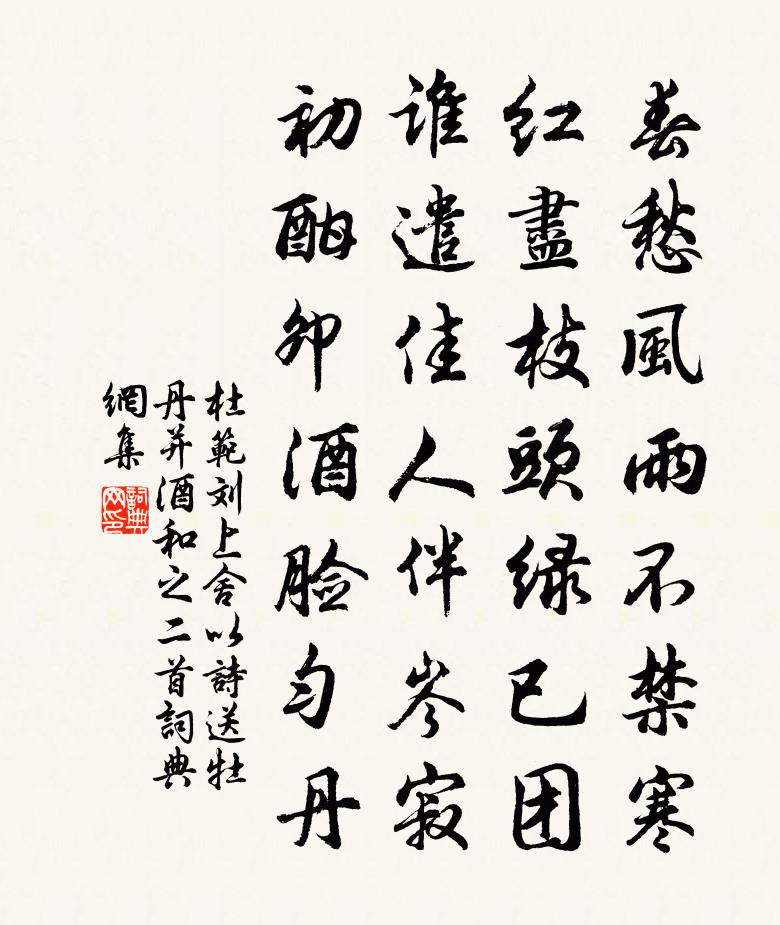 春愁風雨不禁寒
紅盡枝頭緑已团
谁遣佳人伴岑寂
初酣卯酒脸匀丹
杜範刘上舍以詩送牡
丹并酒和之二首詞典
網集
詞典
网印